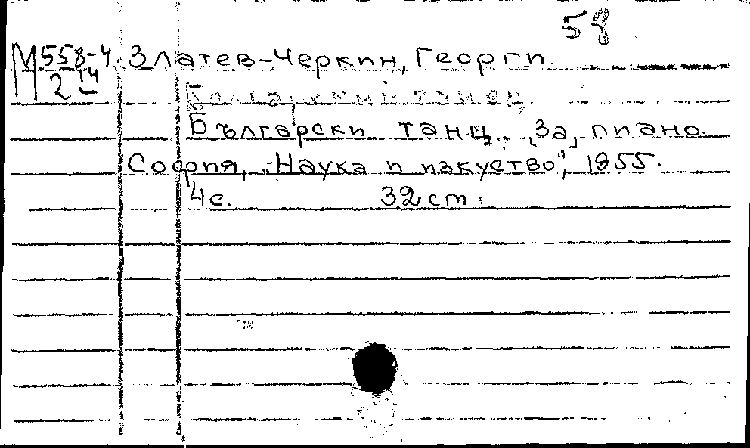 58
М 558-4 Златев-Черкин, Георги
2 14
Болгарский танец.
Български танц. За пиано.
София, "Наука и изкуство", 1955.
4 с. 32 cm.